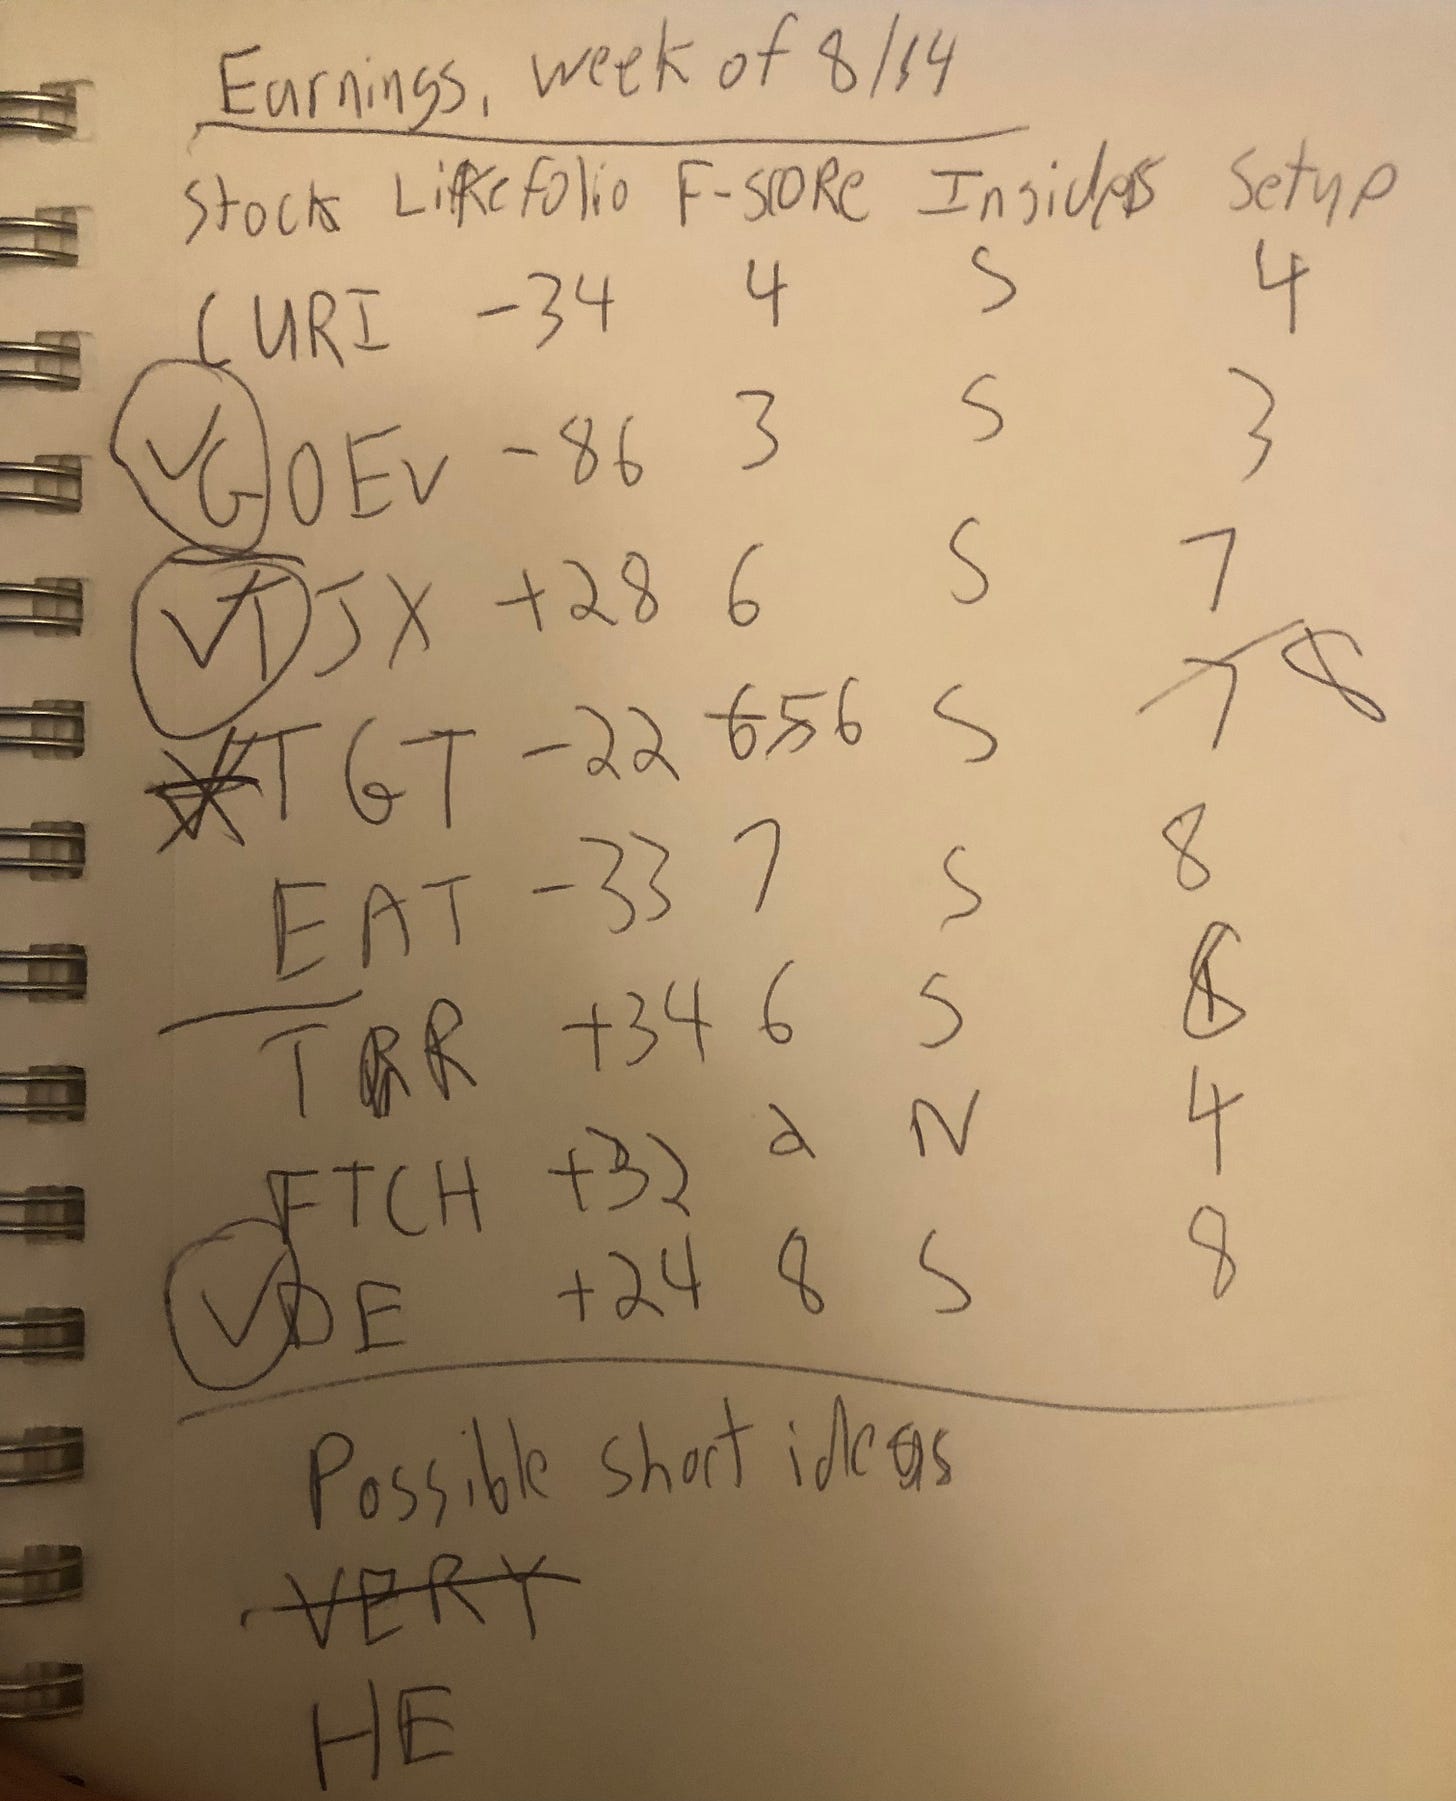 Earnings, week of 8/14
Stock Likefolio F-score Insiders Setup
CURI -34 4 S 4
GOEV -86 3 S 3
TJX +28 6 S 7
TGT -22 6 5 6 S 7 8
EAT -33 7 S 8
TPR +34 6 S 8
FTCH +32 2 N 4
DE +24 8 S 8
Possible short ideas
VERY
HE